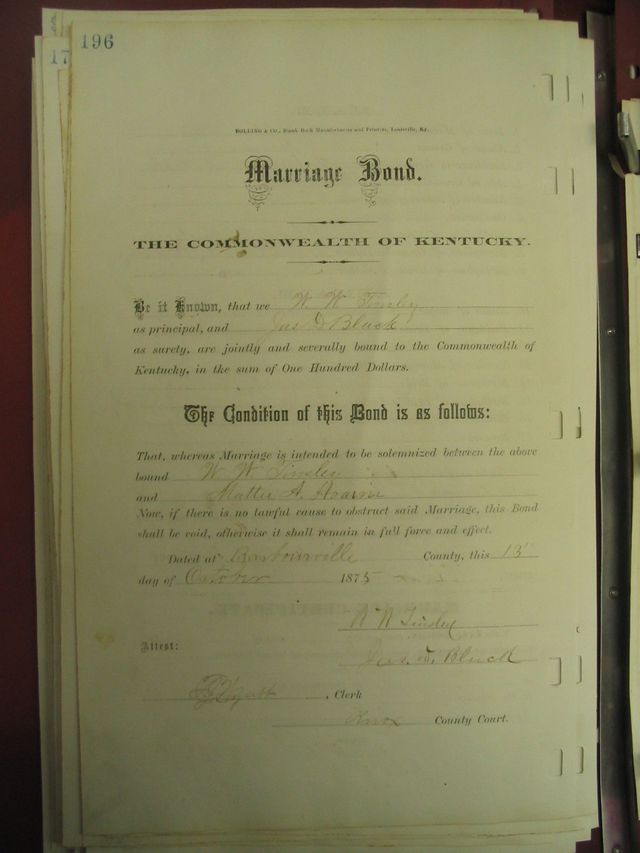 196
17
BOLLING & CO., Blank Book Manufacturers and Printers, Louisville, Ky.
Marriage Bond.
THE COMMONWEALTH OF KENTUCKY.
Be it Known, that we W W Tinsley
as principal, and Jas D Black
as surety, are jointly and severally bound to the Commonwealth of
Kentucky, in the sum of One Hundred Dollars.
The Condition of this Bond is as follows:
That, whereas Marriage is intended to be solemnized between the above
bound W W Tinsley
and Mattie A.
Now, if there is no lawful cause to obstruct said Marriage, this Bond
shall be void, otherwise it shall remain in full force and effect.
Dated at Barbourville County, this 13
day of October 1875
W W Tinsley
Attest:
Jas. D. Black
, Clerk
Knox County Court.